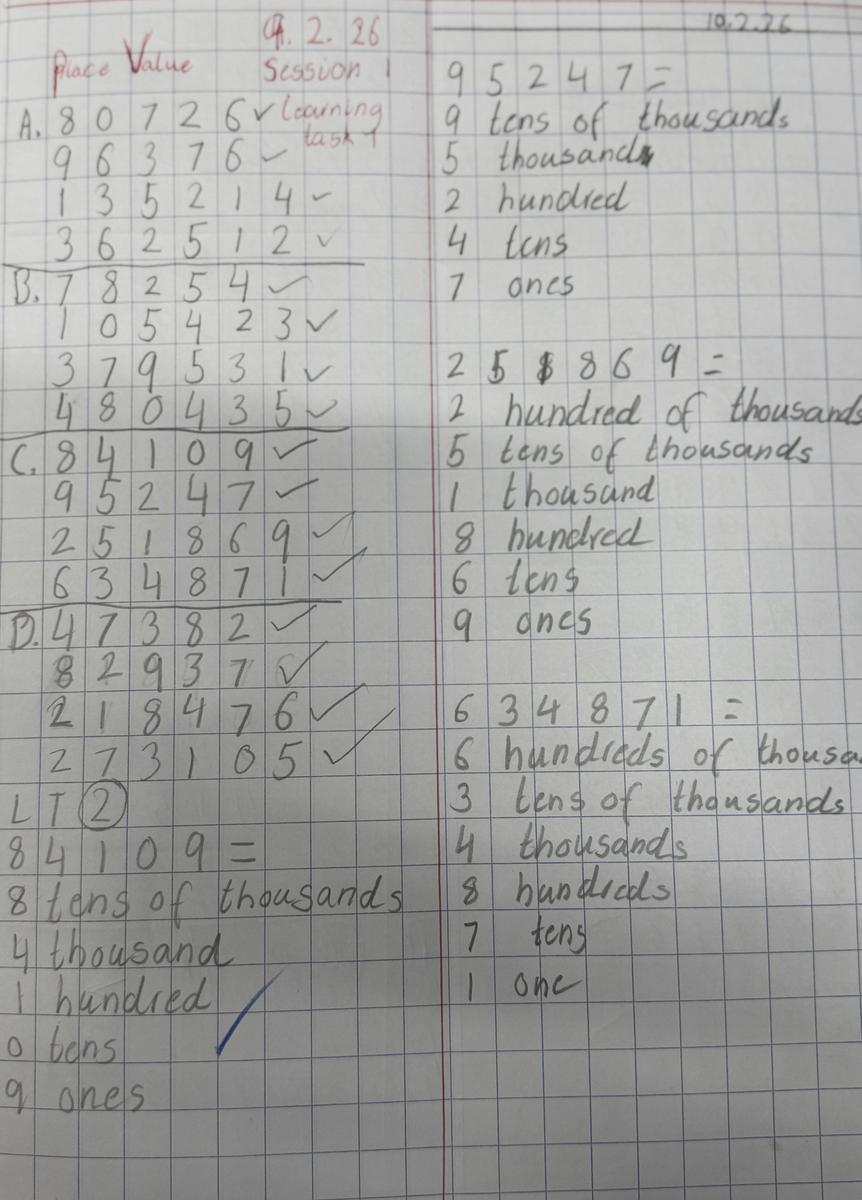 9.2.26
Place Value Session 1
A. 8 0 7 2 6 ✓ Learning
task 1
9 6 3 7 6 ✓
1 3 5 2 1 4 ✓
3 6 2 5 1 2 ✓
B. 7 8 2 5 4 ✓
1 0 5 4 2 3 ✓
3 7 9 5 3 1 ✓
4 8 0 4 3 5 ✓
C. 8 4 1 0 9 ✓
9 5 2 4 7 ✓
2 5 1 8 6 9 ✓
6 3 4 8 7 1 ✓
D. 4 7 3 8 2 ✓
8 2 9 3 7 ✓
2 1 8 4 7 6 ✓
2 7 3 1 0 5 ✓
L T 2
8 4 1 0 9 =
8 tens of thousands
4 thousand
1 hundred
0 tens
9 ones
10.2.26
9 5 2 4 7 =
9 tens of thousands
5 thousands
2 hundred
4 tens
7 ones
2 5 1 8 6 9 =
2 hundred of thousands
5 tens of thousands
1 thousand
8 hundred
6 tens
9 ones
6 3 4 8 7 1 =
6 hundreds of thousa
3 tens of thousands
4 thousands
8 hundreds
7 tens
1 one